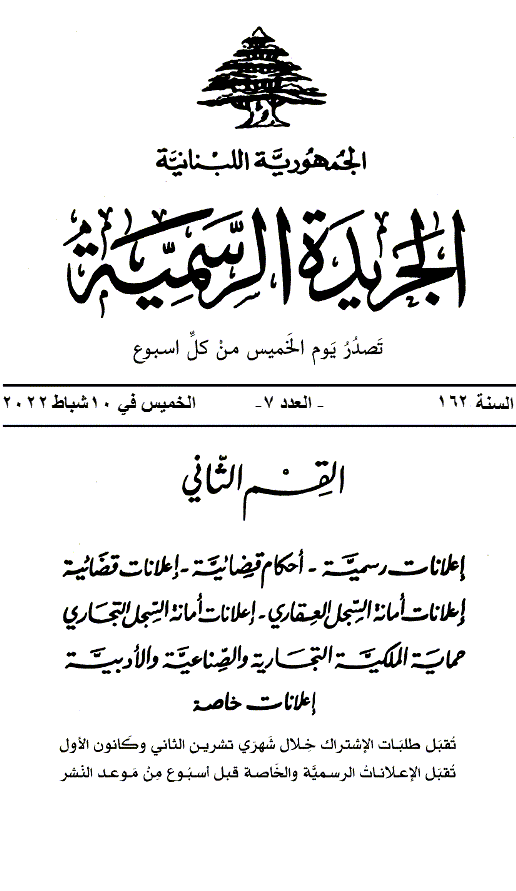 الجمهوريّة اللبنانيّة
الجريدة الرسميّة
تَصدُرُ يَوم الخَميس منْ كلِّ اسبوع
السنة ١٦٢ - العدد ٧- الخميس في ١٠ شباط ٢٠٢٢
القِسْم الثّاني
إعلانات رسميَّة - أحكام قضائيَّة - إعلانات قضائية
إعلانات أمانة السِّجل العِقاري - إعلانات أمانة السِّجل التجاري
حماية الملكيَّة التجارية والصِّناعيَّة والأدبيَّة
إعلانات خاصة
تُقبَل طلبَات الإشتراك خلال شَهرَي تشرين الثاني وكَانون الأول
تُقبَل الإعلاناتُ الرسميَّة والخَاصة قبل أسبُوع مِنْ مَوعد النَشر